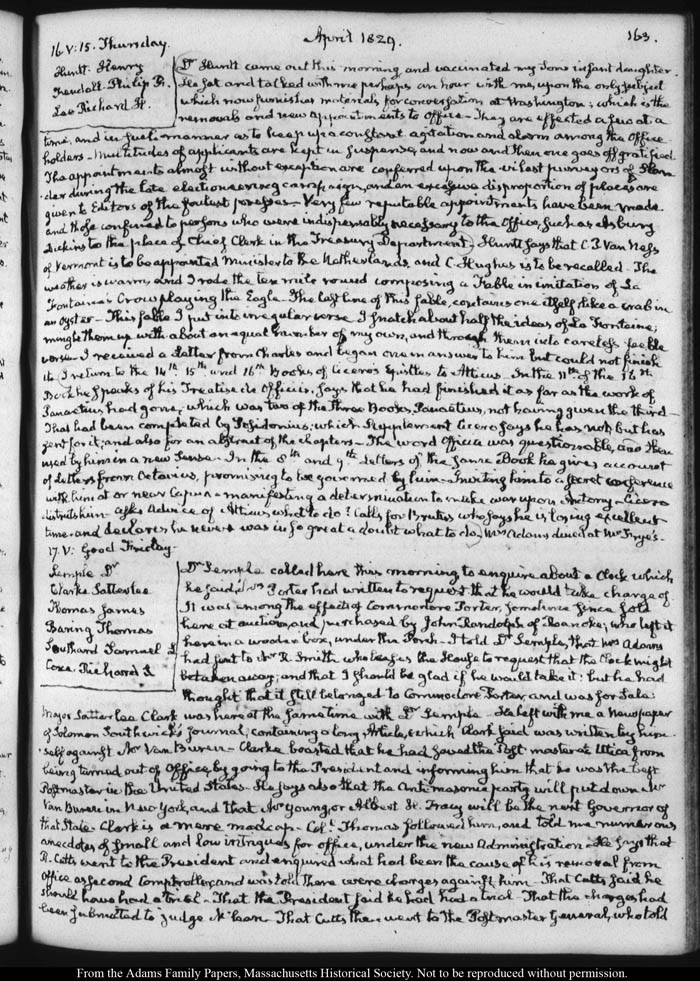 April 1829.
163.
16. V: 15. Thursday.
Huntt. Henry
Fendall. Philip R.
Lee Richard H.
Dr Huntt came out this morning and vaccinated my Sons infant daughter.
He sat and talked with me perhaps an hour with me, upon the only subject
which now furnishes materials for conversation at Washington; which is the
removals and new appointments to Office. They are effected a few at a
time, and in such manner as to keep up a constant agitation and alarm among the Office
holders. Multitudes of applicants are kept in suspense, and now and then one goes off gratified.
The appointments almost without exception are conferred upon the vilest purveyors of Slan
der during the late electioneering campaign, and an excessive disproportion of places are
given to Editors of the foulest presses. Very few reputable appointments have been made
and those confined to persons who were indispensably necessary to the Office, such as Asbury
Dickins to the place of Chief Clerk in the Treasury Department, Huntt says that C. P. Van Ness
of Vermont is to be appointed Minister to the Netherlands, and C. Hughes is to be recalled. The
weather is warm, and I rode the ten mile round composing a Fable in imitation of La
Fontaine's Crow playing the Eagle. The last line of this fable, contains one itself like a crab in
an oyster. This fable I put into irregular verse. I snatch about half the ideas of La Fontaine;
mingle them up with about an equal number of my own, and through them into careless feeble
verse. I received a Letter from Charles and began one in answer to him but could not finish
it. I return to the 14th 15th and 16th Books of Cicero's Epistles to Atticus. In the 11th of the 16th
Book he speaks of his Treatise de Officiis. Says that he had finished it as far as the work of
Panaetius had gone, which was two of the three Books, Panaetius, not having given the third
That had been completed by Posidonius; which Supplement Cicero says he has not, but has
sent for it; and also for an abstract of the chapters. The word Officia was questionable, and then
used by him in a new sense. In the 8th and 9th Letters of the same Book he gives account
of Letters from Octavius, promising to be governed by him. Inviting him to a secret conference
with him at or near Capua. manifesting a determination to make war upon Antony. Cicero
distrusts him. asks Advice of Atticus what to do? Calls for Brutus who says he is losing excellent
time. and declares he never was in so great a doubt what to do. Mrs Adams dined at Mr Frye's.
17. V: Good Friday.
Semple Dr
Clarke Satterlee
Thomas James
Baring Thomas
Southard Samuel L
Coxe Richard S
Dr Semple called here this morning to enquire about a Clock which
he said, Mrs Porter had written to request that he would take charge of.
It was among the effects of Commodore Porter, sometime since sold
here at auction, and purchased by John Randolph of Roanoke, who left it
here in a wooden box, under the Porch. I told Dr Semple, that Mrs Adams
had sent to Mr R. Smith who leases the House to request that the Clock might
be taken away; and that I should be glad if he would take it: but he had
thought that it still belonged to Commodore Porter, and was for Sale.
Major Satterlee Clark was here at the same time with Dr Semple. He left with me a Newspaper
of Solomon Southwick's Journal, containing a long Article, which Clark said was written by him
self against Mr Van Buren. Clarke boasted that he had saved the Post master at Utica from
being turned out of Office, by going to the President and informing him that he was the best
Postmaster in the United States. He says also that the Antimasonic party will put down Mr
Van Buren in New York, and that Mr Young, or Albert H. Tracy will be the next Governor of
that State. Clark is a mere madcap. Coll. Thomas followed him, and told me numerous
anecdotes of small and low intrigues for office, under the new Administration. He says that
R. Cutts went to the President and enquired what had been the cause of his removal from
office as second Comptroller, and was told there were charges against him. That Cutts said he
should have had a trial. That the President said he had had a trial. That the charges had
been submitted to Judge McLean. That Cutts then went to the Postmaster General, who told
From the Adams Family Papers, Massachusetts Historical Society. Not to be reproduced without permission.